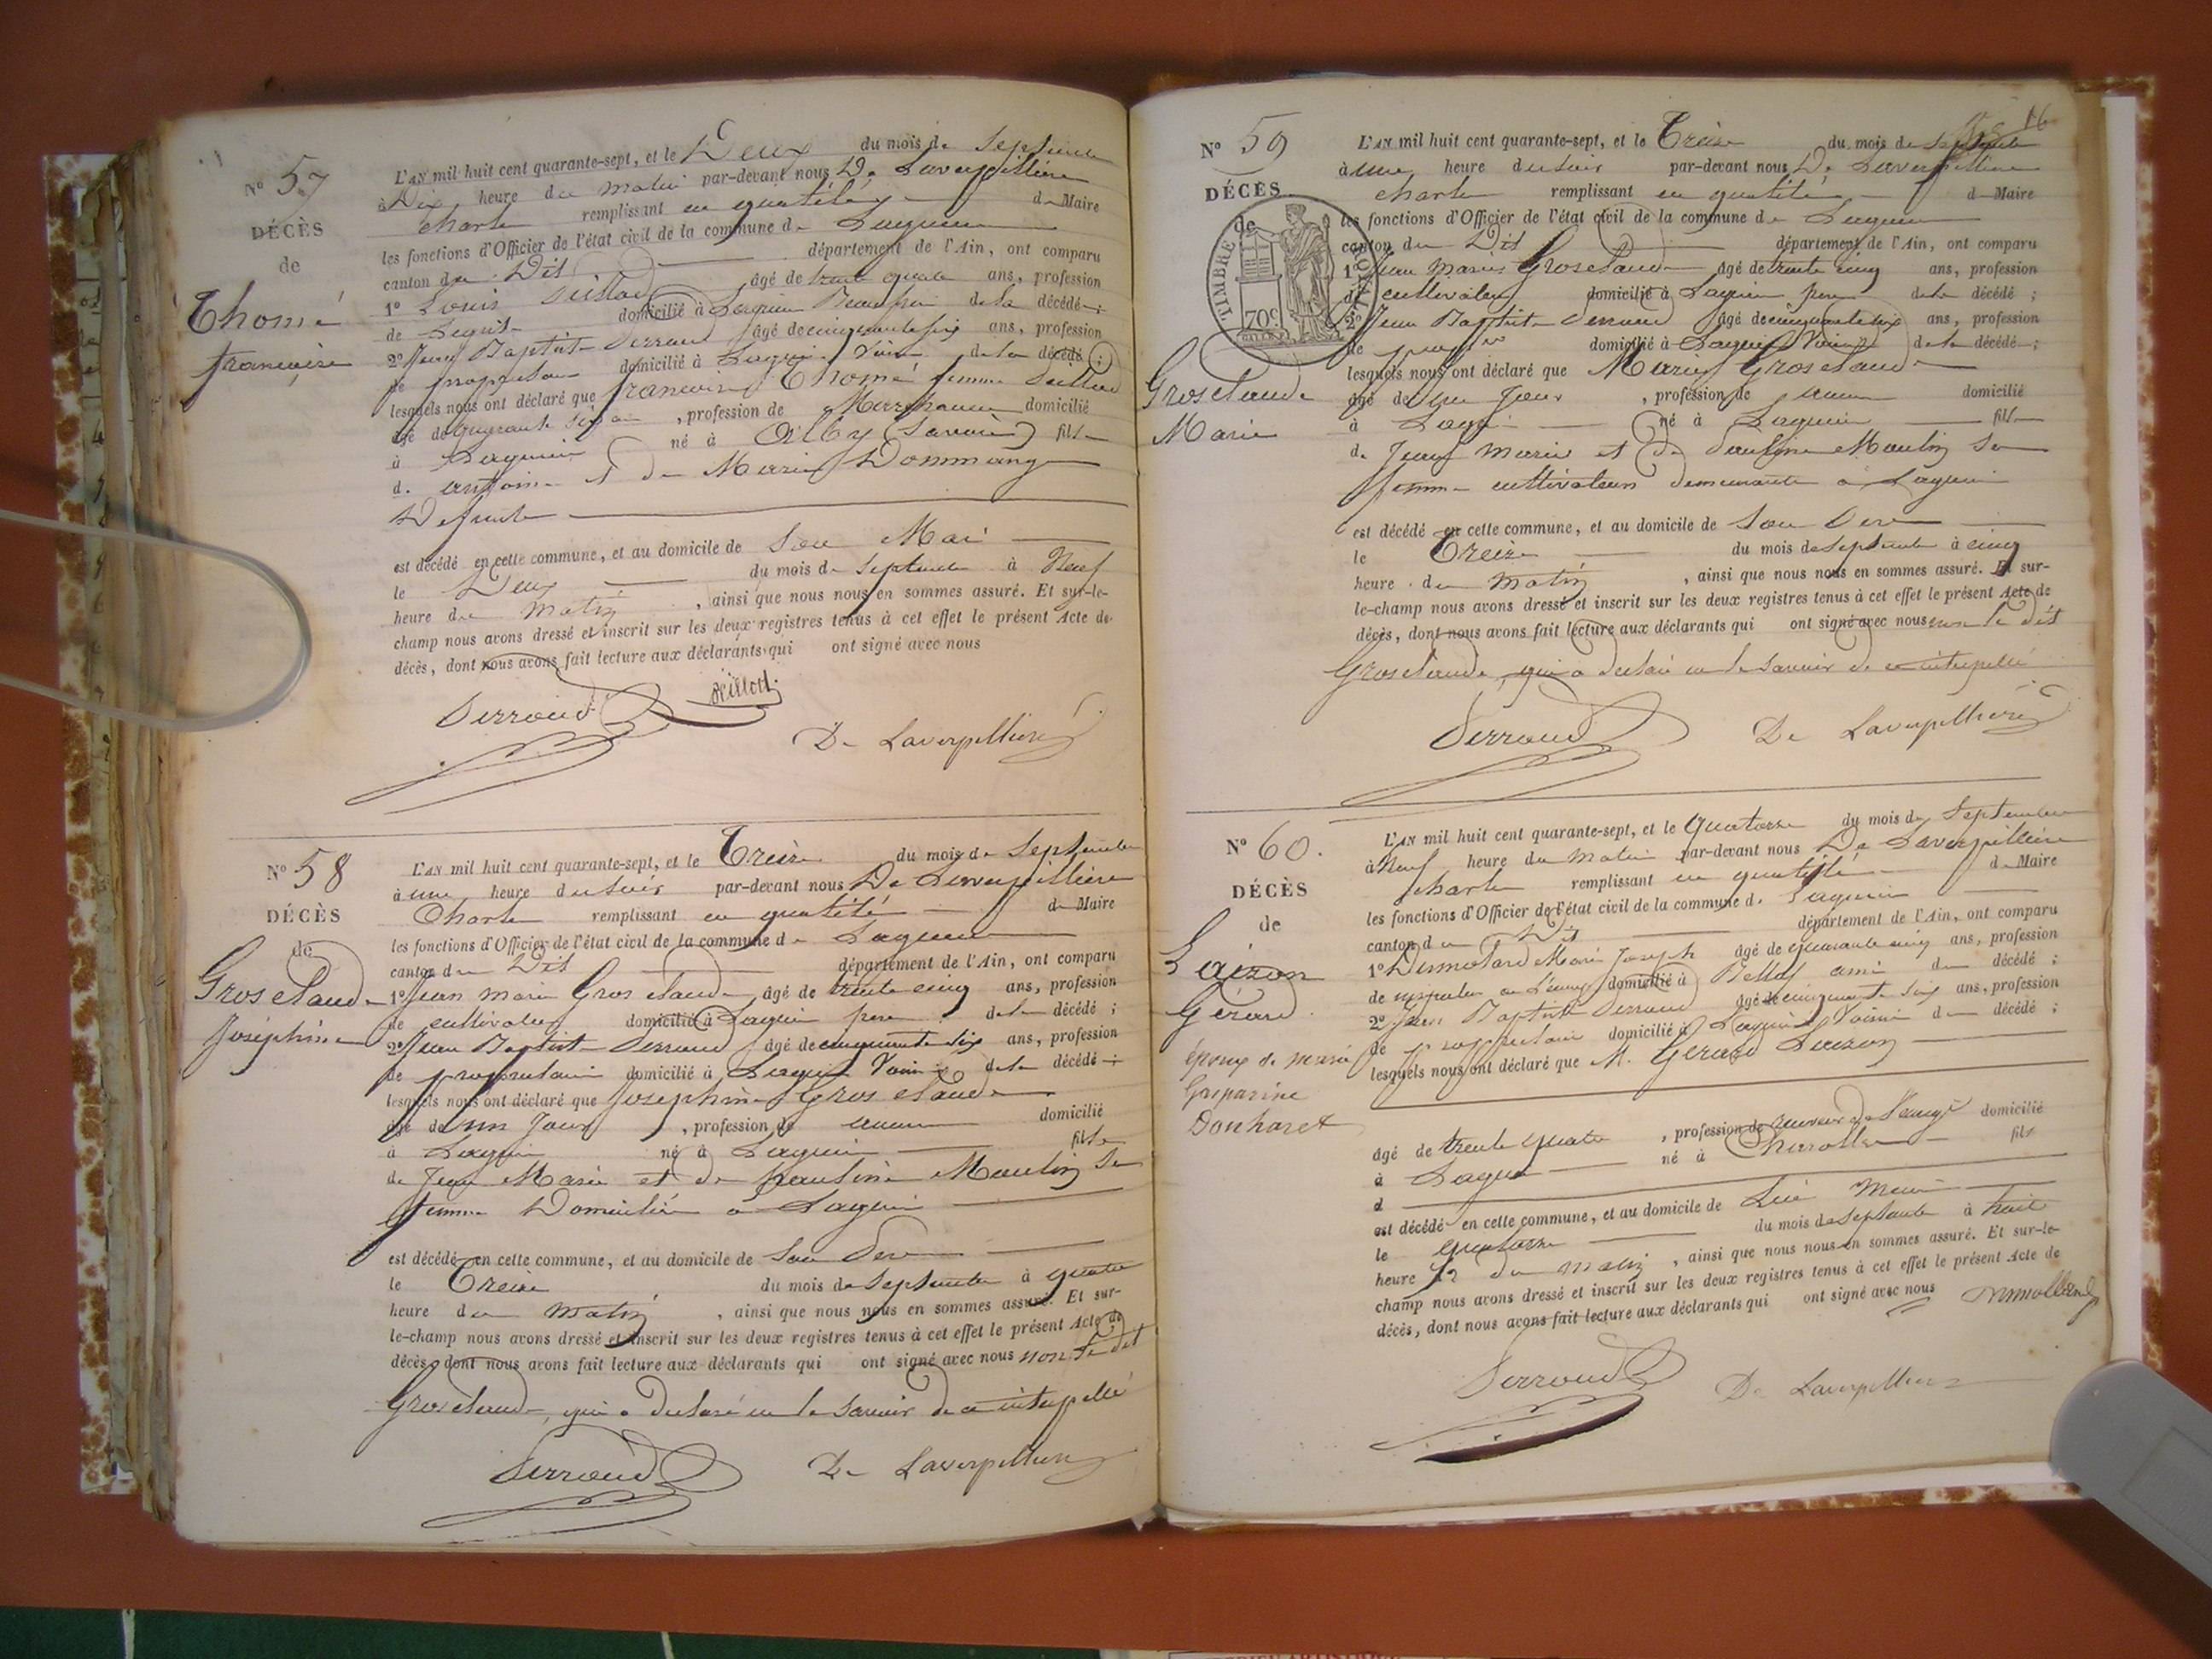 N° 57
DÉCÈS
de
Thomé
françoise
L'AN mil huit cent quarante-sept, et le Deux du mois de Septembre
à Dix heure du matin par-devant nous De Laverpillière
Charle remplissant en qualité de Maire
les fonctions d'Officier de l'état civil de la commune de Lagnieu
canton du Dit département de l'Ain, ont comparu
1° Louis âgé de trente quatre ans, profession
de domicilié à Lagnieu de la décédé ;
2° Jean Baptiste Serraud âgé de cinquante six ans, profession
de propriétaire domicilié à Lagnieu Voisin de la décédé ;
lesquels nous ont déclaré que françoise Thomé femme
âgé de quarante ans, profession de domicilié
à Lagnieu né à Alby (Savoie) fille
d. antoine et de Marie Dommange
Defunte
est décédé en cette commune, et au domicile de Son Mari
le Deux du mois de Septembre à Neuf
heure du Matin, ainsi que nous nous en sommes assuré. Et sur-le-
champ nous avons dressé et inscrit sur les deux registres tenus à cet effet le présent Acte de
décès, dont nous avons fait lecture aux déclarants qui ont signé avec nous
Serraud
De Laverpillière
N° 58
DÉCÈS
de
Grosclaude
Joséphine
L'AN mil huit cent quarante-sept, et le Treize du mois de Septembre
à une heure du Soir par-devant nous De Laverpillière
Charle remplissant en qualité de Maire
les fonctions d'Officier de l'état civil de la commune de Lagnieu
canton du Dit département de l'Ain, ont comparu
1° Jean marie Grosclaude âgé de trente cinq ans, profession
de cultivateur domicilié à Lagnieu pere de la décédé ;
2° Jean Baptiste Serraud âgé de cinquante six ans, profession
de propriétaire domicilié à Lagnieu Voisin de la décédé ;
lesquels nous ont déclaré que Josephine Grosclaude
âgé de un Jour, profession de aucune domicilié
à Lagnieu né à Lagnieu fille
de Jean Marie et de pauline Moulin Sa
femme Domicilié à Lagnieu
est décédé en cette commune, et au domicile de Son Pere
le Treize du mois de Septembre à quatre
heure du Matin, ainsi que nous nous en sommes assuré. Et sur-
le-champ nous avons dressé et inscrit sur les deux registres tenus à cet effet le présent Acte de
décès, dont nous avons fait lecture aux déclarants qui ont signé avec nous non le dit
Grosclaude, qui a declaré ne le savoir de ce interpellé
Serraud
De Laverpillière
16
N° 59
DÉCÈS
de
TIMBRE ROYAL
70c
Grosclaude
Marie
L'AN mil huit cent quarante-sept, et le Treize du mois de Septembre
à une heure du soir par-devant nous De Laverpillière
Charle remplissant en qualité de Maire
les fonctions d'Officier de l'état civil de la commune de Lagnieu
canton du Dit département de l'Ain, ont comparu
1° Jean Marie Grosclaude âgé de trente cinq ans, profession
de cultivateur domicilié à Lagnieu pere de la décédé ;
2° Jean Baptiste Serraud âgé de cinquante six ans, profession
de domicilié à Lagnieu Voisin de la décédé ;
lesquels nous ont déclaré que Marie Grosclaude
âgé de un Jour, profession de aucune domicilié
à Lagnieu né à Lagnieu fille
de Jean Marie et de Moulin Sa
femme cultivateurs demeurants à Lagnieu
est décédé en cette commune, et au domicile de Son Pere
le Treize du mois de Septembre à cinq
heure du Matin, ainsi que nous nous en sommes assuré. Et sur-
le-champ nous avons dressé et inscrit sur les deux registres tenus à cet effet le présent Acte de
décès, dont nous avons fait lecture aux déclarants qui ont signé avec nous non le dit
Grosclaude, qui a declaré ne le savoir de ce interpellé
Serraud
De Laverpillière
N° 60.
DÉCÈS
de
Gérard
époux de marie
Gasparine
L'AN mil huit cent quarante-sept, et le Quatorze du mois de Septembre
à Neuf heure du matin par-devant nous De Laverpillière
Charle remplissant en qualité de Maire
les fonctions d'Officier de l'état civil de la commune d. Lagnieu
canton du Dit département de l'Ain, ont comparu
1° Marie Joseph âgé de quarante cinq ans, profession
de domicilié à Belley ami du décédé ;
2° Jean Baptiste Serraud âgé de cinquante six ans, profession
de propriétaire domicilié à Lagnieu Voisin du décédé ;
lesquels nous ont déclaré que M. Gerard
âgé de trente quatre, profession de domicilié
à Lagnieu né à Charolles fils
d
est décédé en cette commune, et au domicile de Lui même
le Quatorze du mois de Septembre à huit
heure 1/2 du matin, ainsi que nous nous en sommes assuré. Et sur-le-
champ nous avons dressé et inscrit sur les deux registres tenus à cet effet le présent Acte de
décès, dont nous avons fait lecture aux déclarants qui ont signé avec nous
Serraud
De Laverpillière